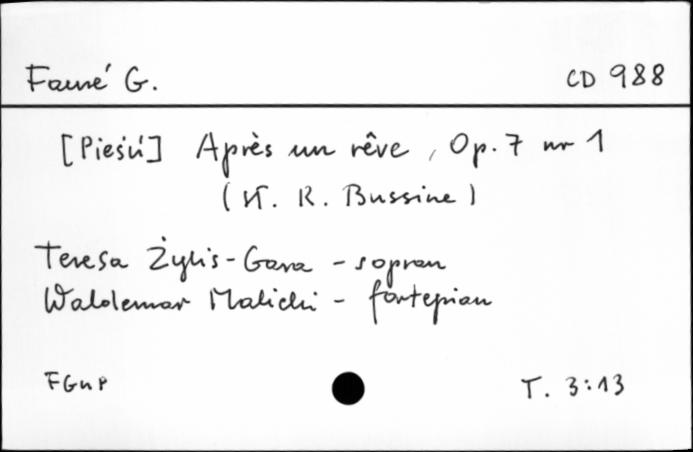 Fauré G. CD 988
[Pieśń] Après un rêve, Op. 7 nr 1
(sł. R. Bussine)
Teresa Żylis-Gara - sopran
Waldemar Malicki - fortepian
FGnP T. 3:13